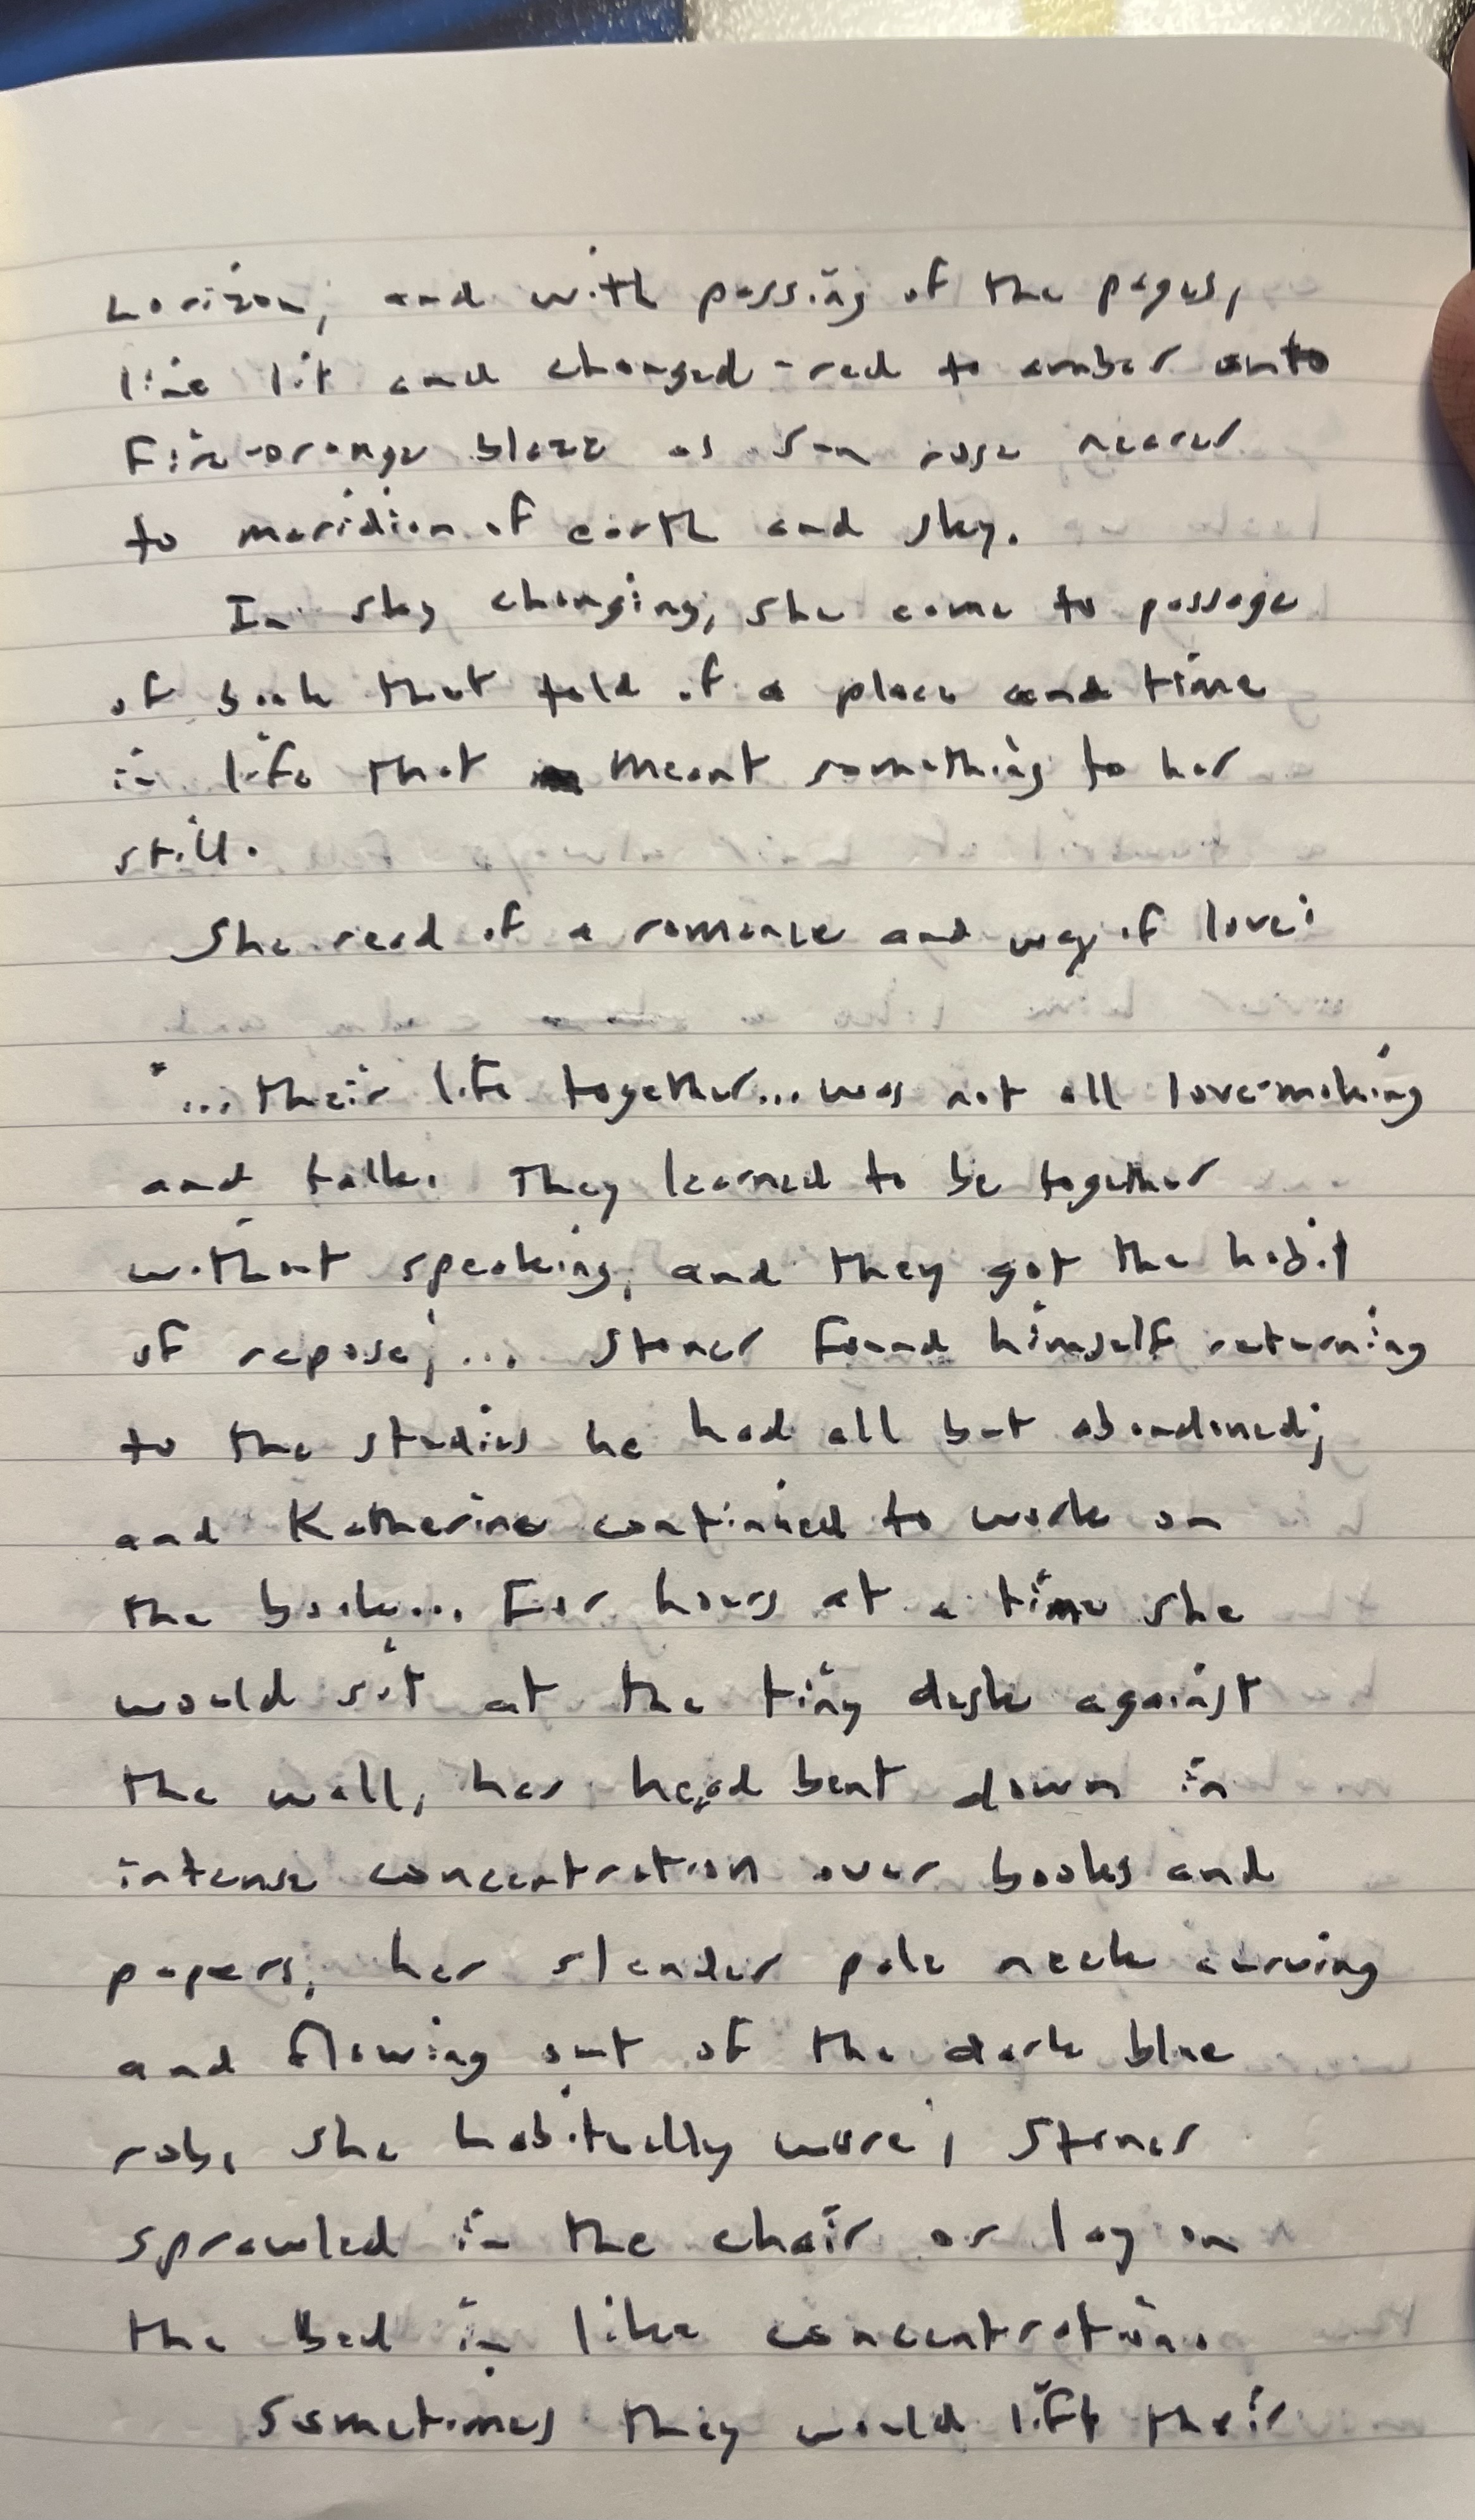 horizon, and with passing of the pages,
line lit and changed - red to amber onto
fire-orange blaze as sun rose nearer
to meridian of earth and sky.
In sky changing, she came to passage
of book that told of a place and time
in life that meant something to her
still.
She read of a romance and way of love:
"...their life together... was not all love-making
and talk. They learned to be together
without speaking, and they got the habit
of repose; ... Stoner found himself returning
to the studies he had all but abandoned;
and Katherine continued to work on
the book... For hours at a time she
would sit at the tiny desk against
the wall, her head bent down in
intense concentration over books and
papers, her slender pale neck curving
and flowing out of the dark blue
robe she habitually wore; Stoner
sprawled in the chair or lay on
the bed in like concentration.
Sometimes they would lift their